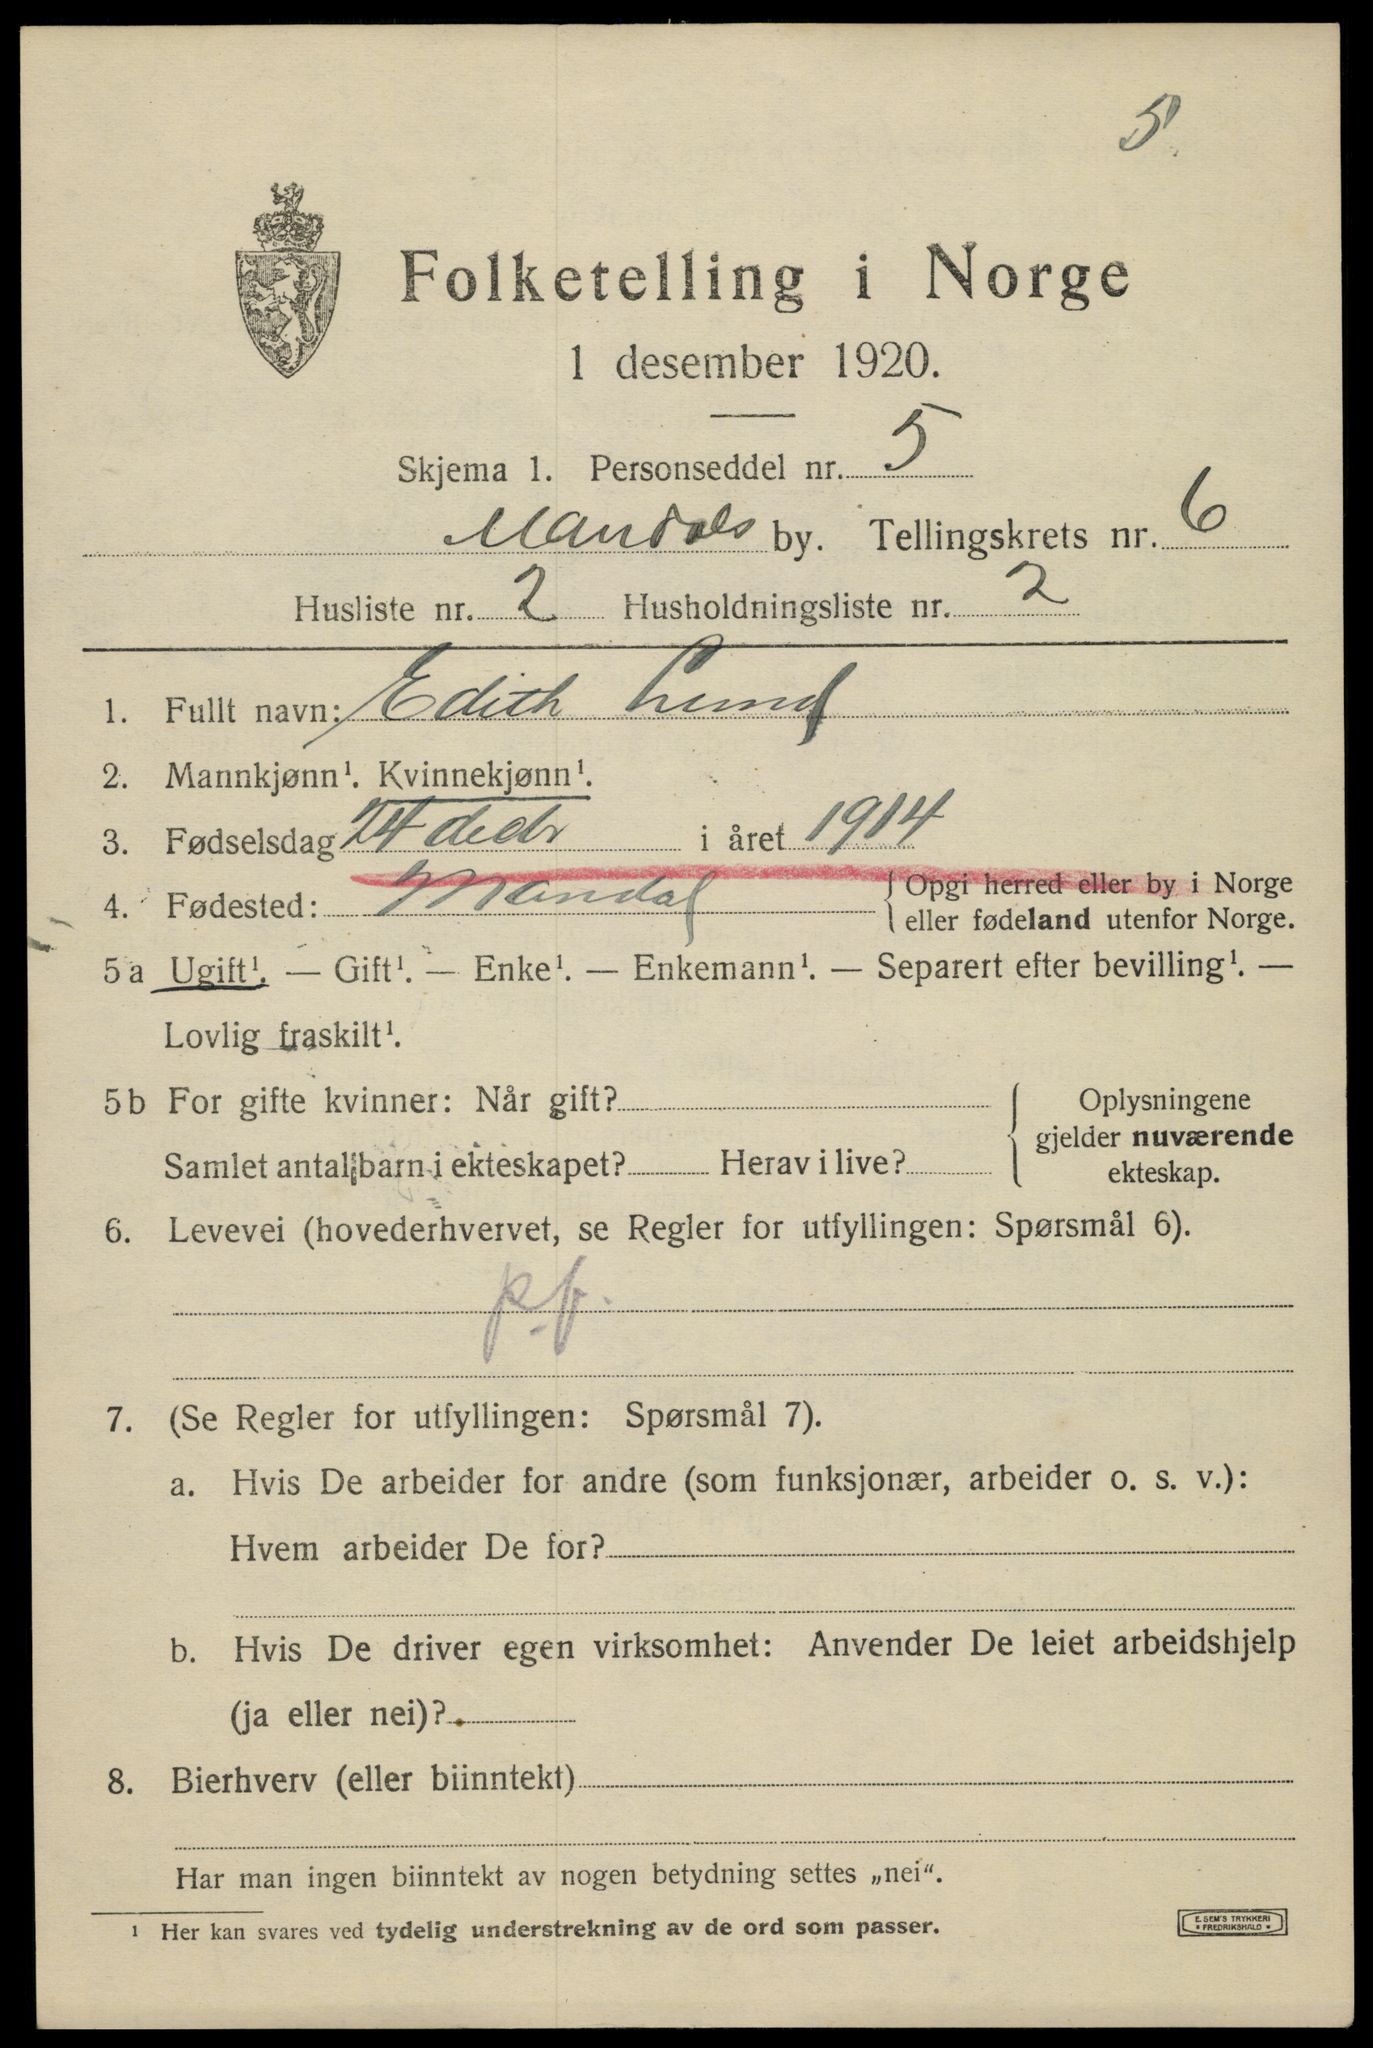 5
Folketelling i Norge
1 desember 1920.
Skjema 1. Personseddel nr. 5
Mandals by. Tellingskrets nr. 6
Husliste nr. 2 Husholdningsliste nr. 2
1. Fullt navn: Edith Lund
2. Mannkjønn¹. Kvinnekjønn¹.
3. Fødselsdag 24 decbr i året 1914
4. Fødested: Mandal { Opgi herred eller by i Norge
eller fødeland utenfor Norge.
5a Ugift¹. — Gift¹. — Enke¹. — Enkemann¹. — Separert efter bevilling¹. —
Lovlig fraskilt¹.
5b For gifte kvinner: Når gift? { Oplysningene
gjelder nuværende
Samlet antal barn i ekteskapet? Herav i live? ekteskap.
6. Levevei (hovederhvervet, se Regler for utfyllingen: Spørsmål 6).
p.f.
7. (Se Regler for utfyllingen: Spørsmål 7).
a. Hvis De arbeider for andre (som funksjonær, arbeider o. s. v.):
Hvem arbeider De for?
b. Hvis De driver egen virksomhet: Anvender De leiet arbeidshjelp
(ja eller nei)?
8. Bierhverv (eller biinntekt)
Har man ingen biinntekt av nogen betydning settes „nei“.
¹ Her kan svares ved tydelig understrekning av de ord som passer.
E. SEM'S TRYKKERI
* FREDRIKSHALD *